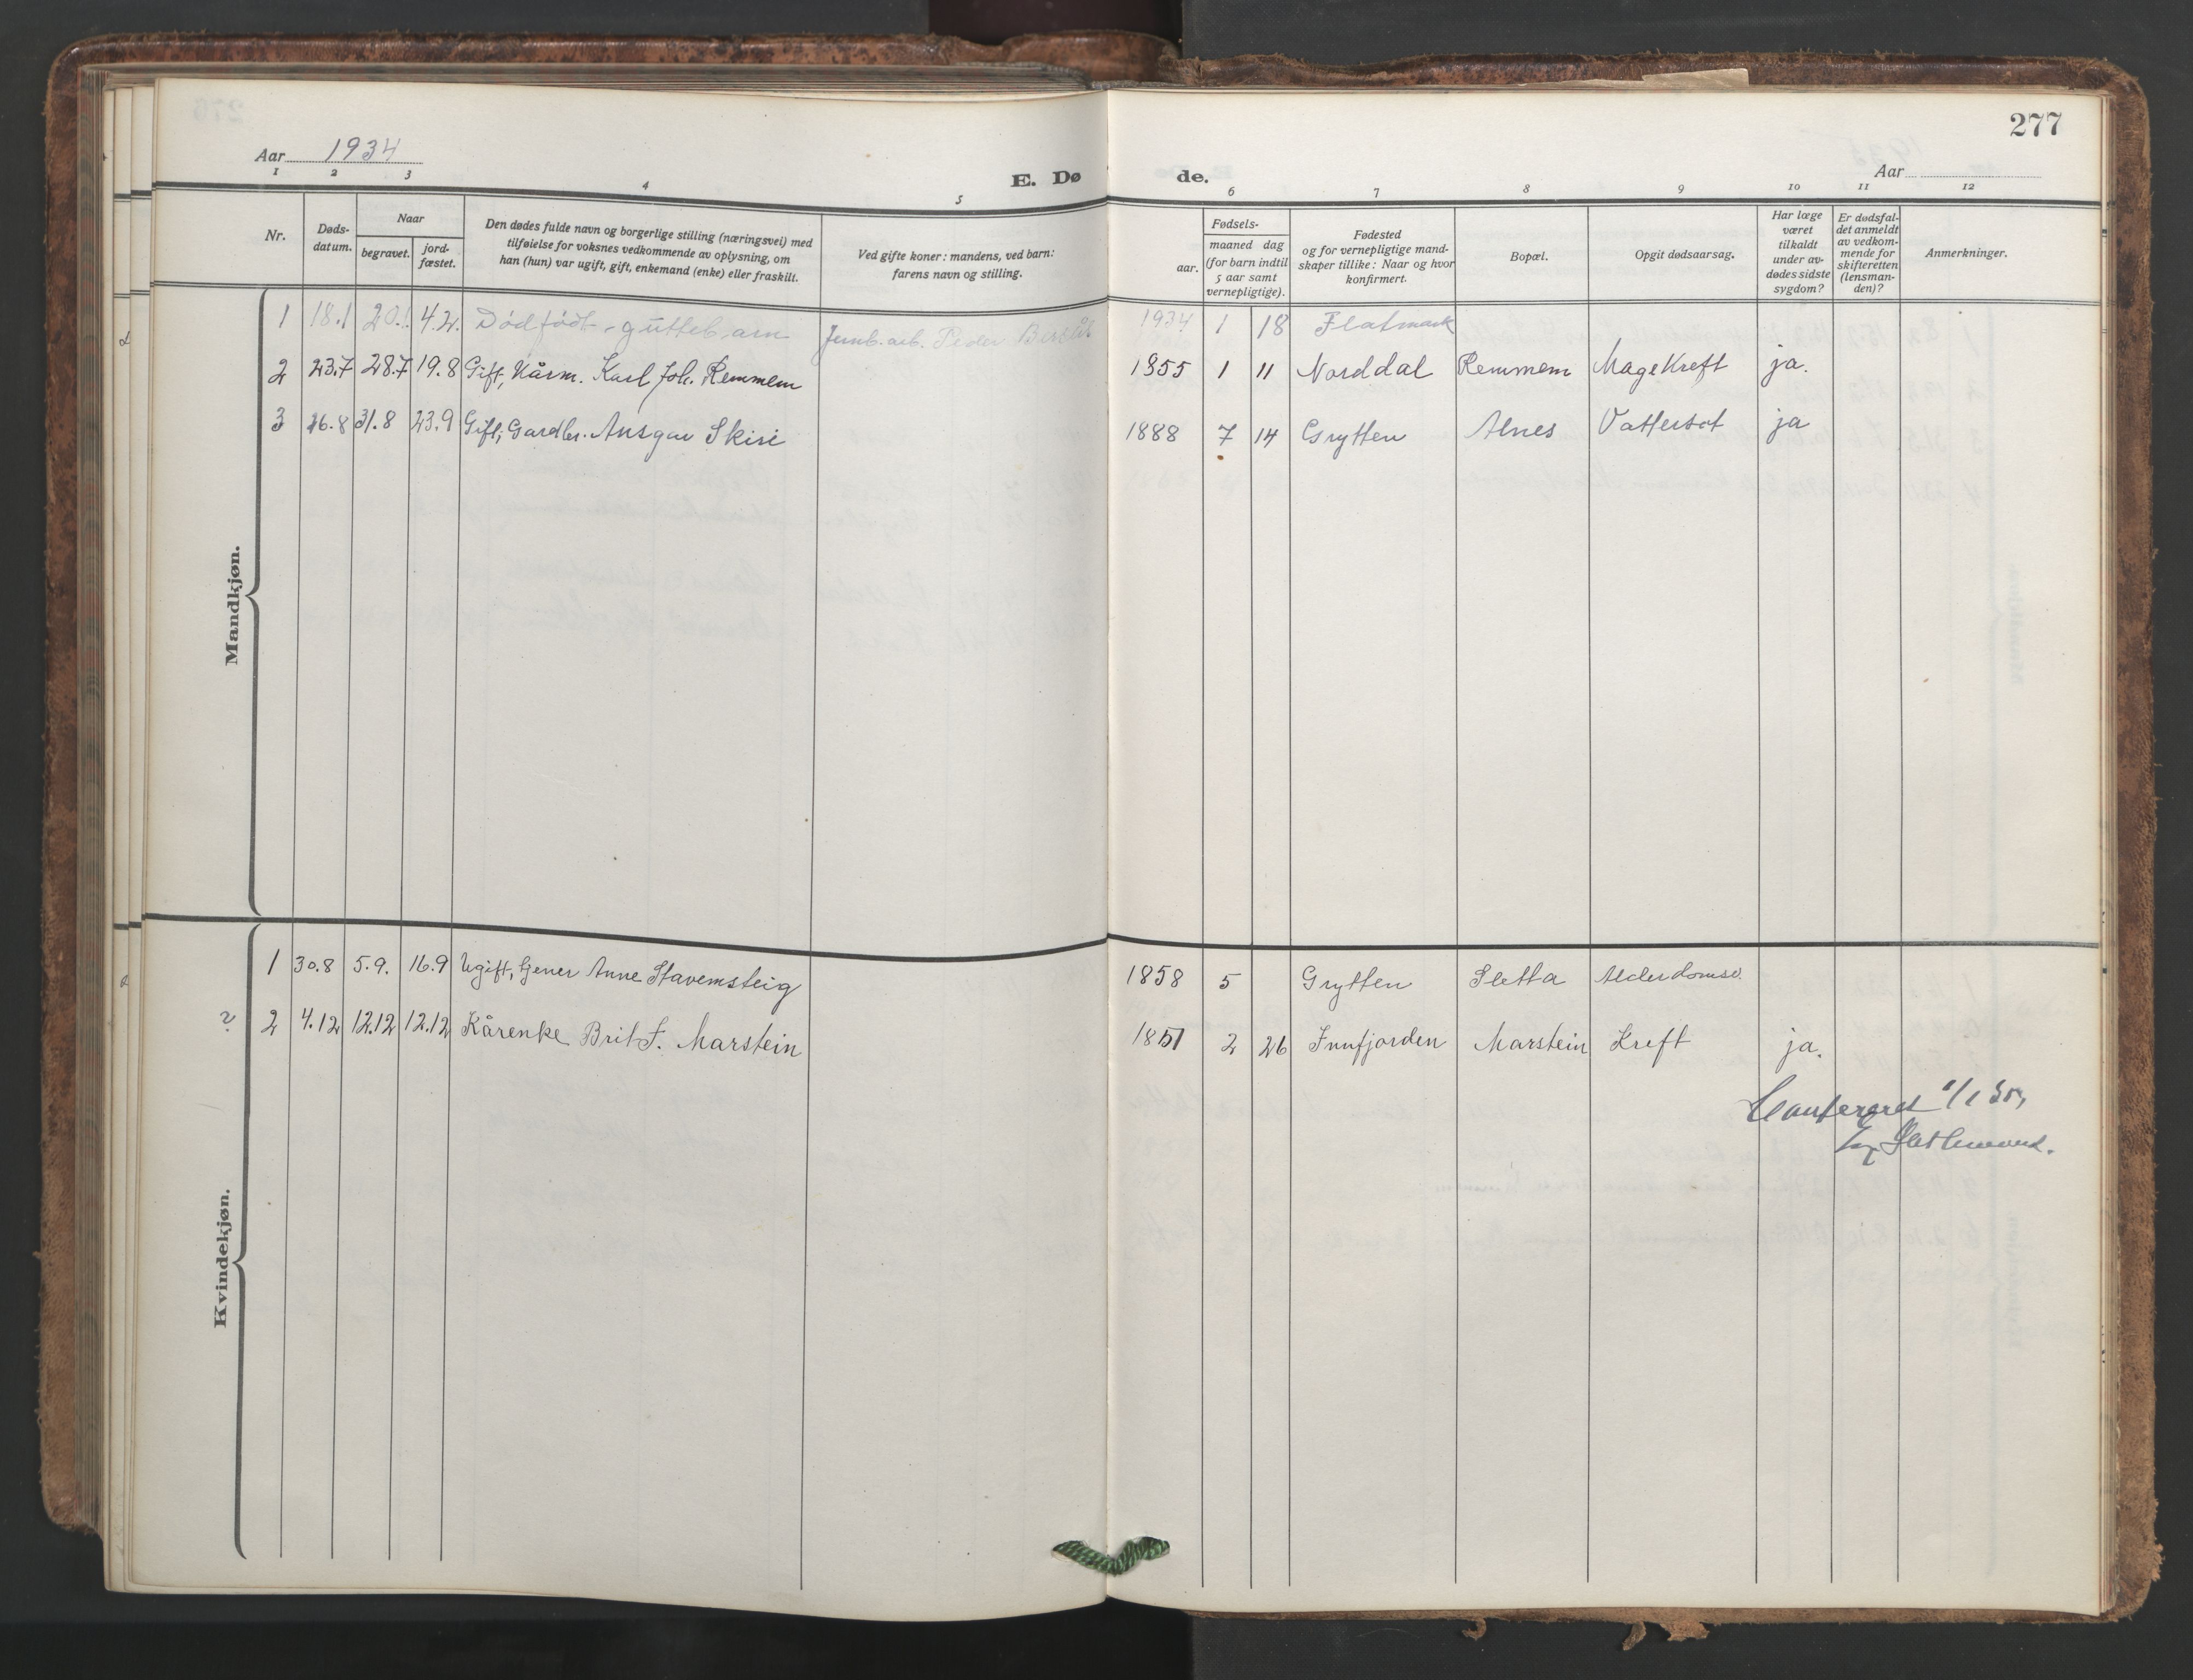 277
Aar 1934
E. Dø de.
Aar
1 2 3 4 5 6 7 8 9 10 11 12
Nr.
Døds-
datum.
Naar
begravet.
jord-
fæstet.
Den dødes fulde navn og borgerlige stilling (næringsvei) med
tilføielse for voksnes vedkommende av oplysning, om
han (hun) var ugift, gift, enkemand (enke) eller fraskilt.
Ved gifte koner: mandens, ved barn:
farens navn og stilling.
Fødsels-
aar.
maaned dag
(for barn indtil
5 aar samt
vernepligtige).
Fødested
og for vernepligtige mand-
skaper tillike: Naar og hvor
konfirmert.
Bopæl.
Opgit dødsaarsag.
Har læge
været
tilkaldt
under av-
dødes sidste
sygdom?
Er dødsfal-
det anmeldt
av vedkom-
mende for
skifteretten
(lensman-
den)?
Anmerkninger.
Mandkjøn.
1 18.1 20.1 4.2. Dødfødt guttebarn Jernb.arb. Peder 1934 1 18 Flatmark
2 23.7 28.7 19.8 Gift, Kårm. Karl Joh. Remmem 1855 1 11 Norddal Remmem Magekreft ja.
3 26.8 31.8 23.9 Gift, Gardbr. Ansgar Skiri 1888 7 14 Grytten Alnes Vattersot ja
Kvindekjøn.
1 30.8 5.9. 16.9 Ugift, Anne Stavemsteig 1858 5 Grytten Sletta Alderdomsv.
2 2 4.12 12.12 12.12 Kårenke Brit J. Marstein 1851 2 26 Innfjorden Marstein Kreft ja.